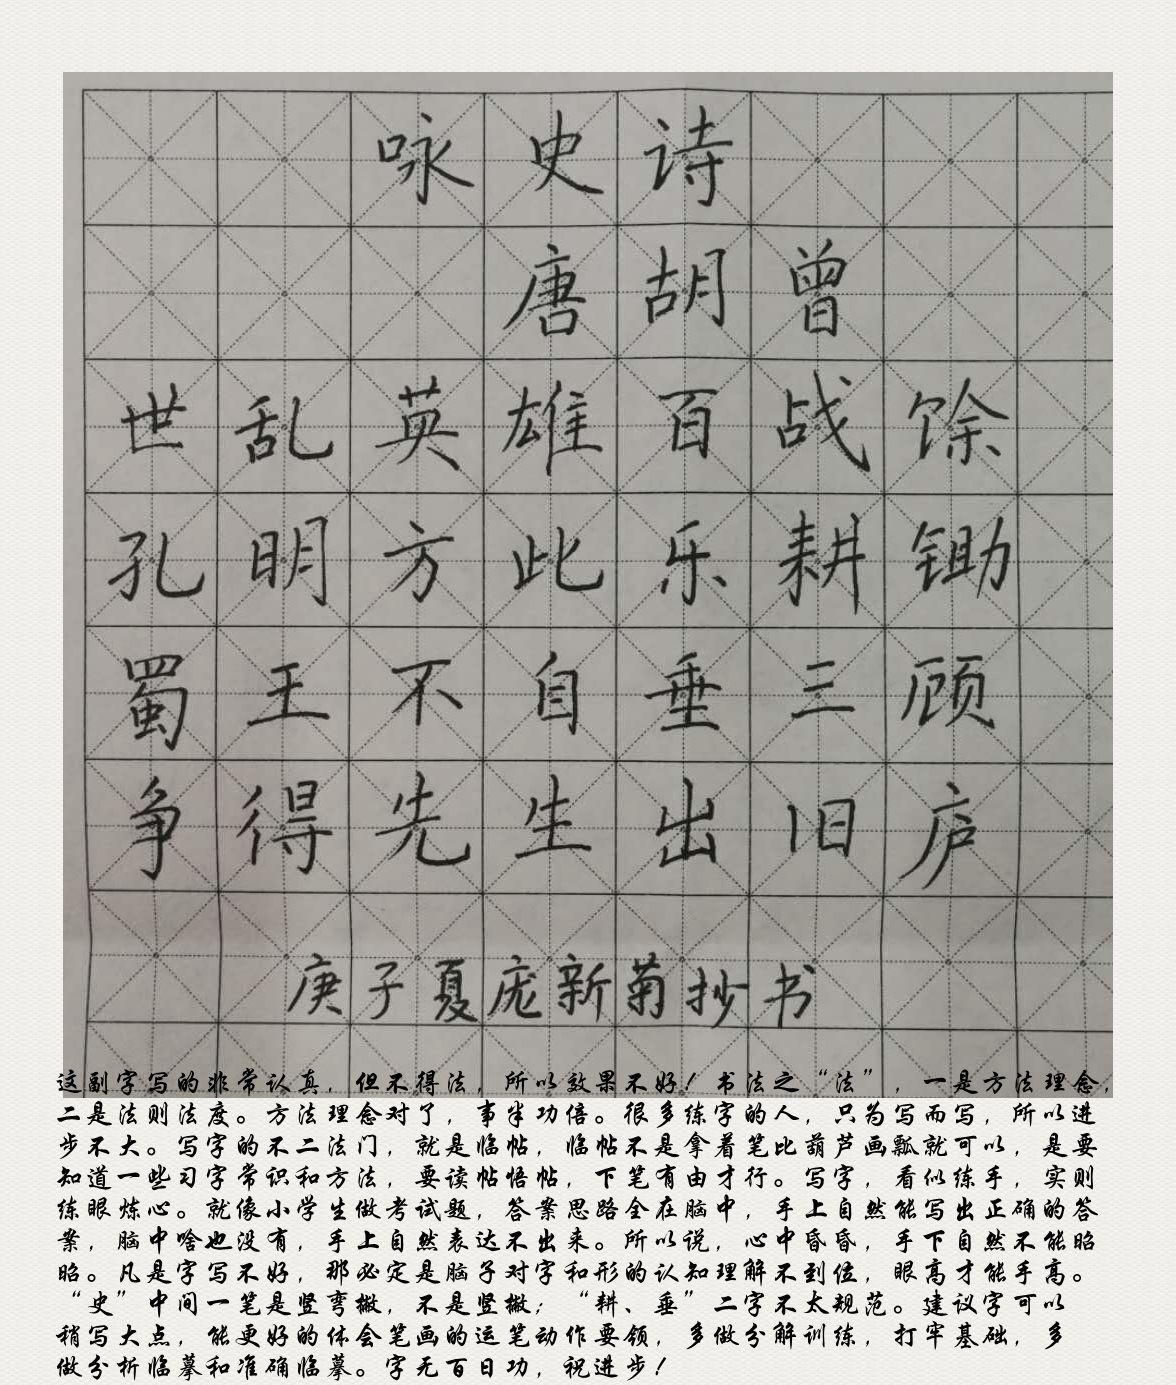 咏史诗
唐胡曾
世乱英雄百战馀
孔明方此乐耕锄
蜀王不自垂三顾
争得先生出旧庐
庚子夏庞新菊抄书
这副字写的非常认真，但不得法，所以效果不好！书法之“法”，一是方法理念，
二是法则法度。方法理念对了，事半功倍。很多练字的人，只为写而写，所以进
步不大。写字的不二法门，就是临帖，临帖不是拿着笔比葫芦画瓢就可以，是要
知道一些习字常识和方法，要读帖悟帖，下笔有由才行。写字，看似练手，实则
练眼炼心。就像小学生做考试题，答案思路全在脑中，手上自然能写出正确的答
案，脑中啥也没有，手上自然表达不出来。所以说，心中昏昏，手下自然不能昭
昭。凡是字写不好，那必定是脑子对字和形的认知理解不到位，眼高才能手高。
“史”中间一笔是竖弯撇，不是竖撇；“耕、垂”二字不太规范。建议字可以
稍写大点，能更好的体会笔画的运笔动作要领，多做分解训练，打牢基础，多
做分析临摹和准确临摹。字无百日功，祝进步！